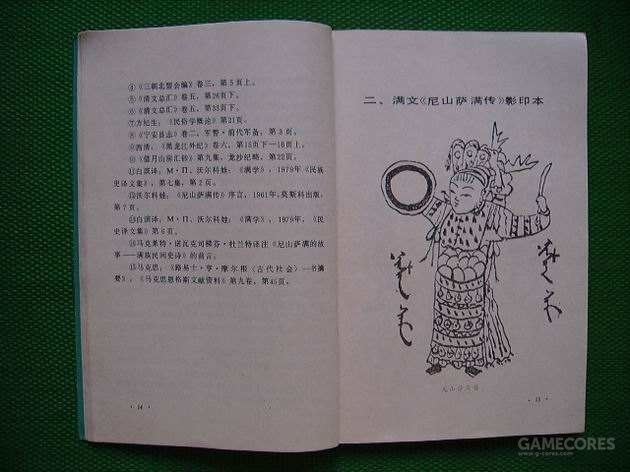 ④《三朝北盟会编》卷三，第5页上。
⑤《清文总汇》卷五，第26页下。
⑥《清文总汇》卷五，第33页下。
⑦方纪生：《民俗学概论》第21页。
⑧《宁安县志》卷二，军警·前代军备；第3页。
⑨西清：《黑龙江外纪》卷六，第15页下—16页上。
⑩《借月山房汇钞》第九集，龙沙纪略，第22页。
⑪白滨译：M·П、沃尔科娃：《满学》，1979年《民族
史译文集》，第七集，第2页。
⑫沃尔科娃：《尼山萨满传》序言，1961年，莫斯科出版，
第7页。
⑬白滨译：M·П·沃尔科娃：《满学》，1979年，《民
史译文集》第6页。
⑭马克莱特·诺瓦克司梯芬·杜兰特译注《尼山萨满的故
事——满族民间史诗》的前言。
⑮马克思：《路易士·亨·摩尔根〈古代社会〉一书摘
要》，《马克思恩格斯文献资料》第九卷，第45页。
· 14 ·
二、满文《尼山萨满传》影印本
· 15 ·
GAMECORES
www.g-cores.com